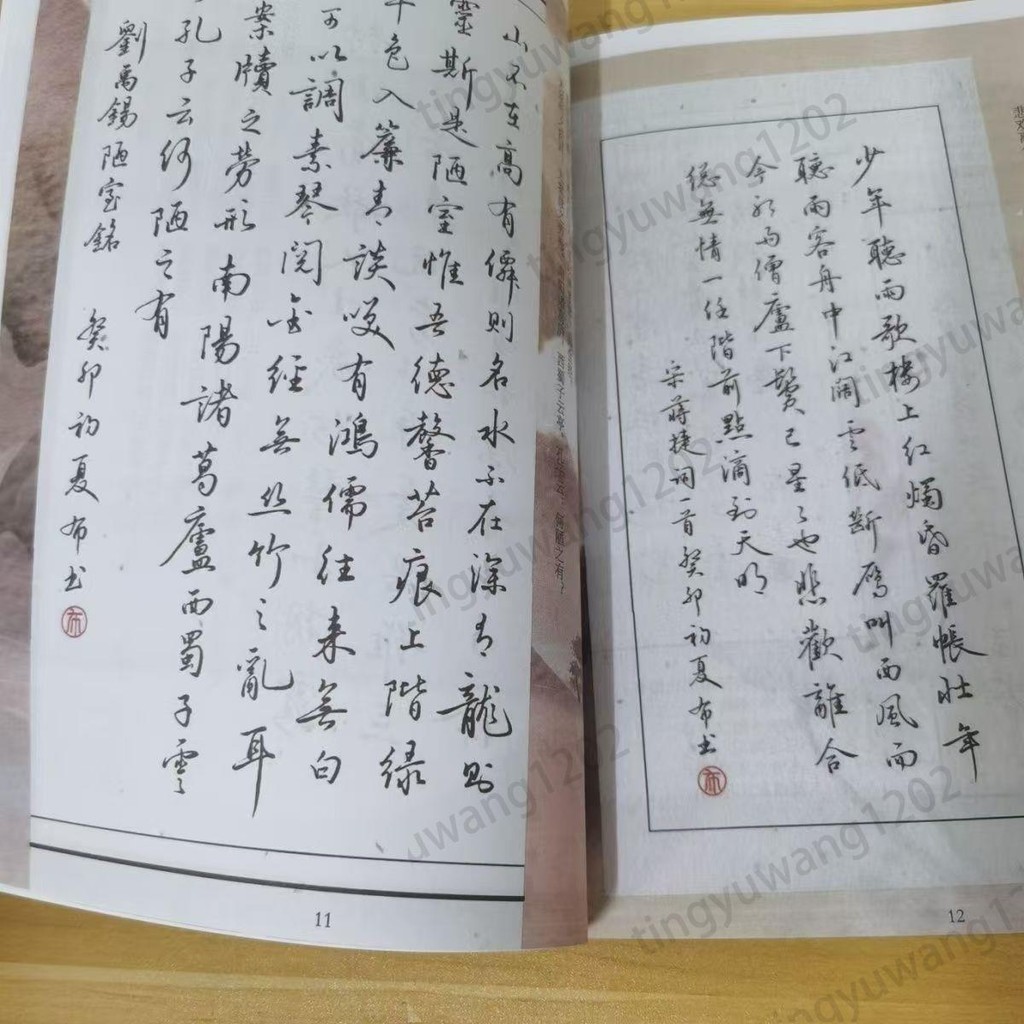 山不在高有僊則名水不在深有龍則
靈斯是陋室惟吾德馨苔痕上階緑
色入簾青談笑有鴻儒往来無白
可以調素琴閱金經無丝竹之亂耳
案牘之勞形南陽諸葛廬西蜀子雲
孔子云何陋之有
劉禹錫陋室銘 癸卯初夏布书
布
西蜀子云亭。孔子云：何陋之有？
11
少年聽雨歌樓上红燭昏羅帳壯年
聽雨客舟中江闊雲低断雁叫西風而
今聽雨僧廬下鬢已星々也悲歡離合
總無情一任階前點滴到天明
宋蔣捷詞一首癸卯初夏布书
布
12
tingyuwang1202